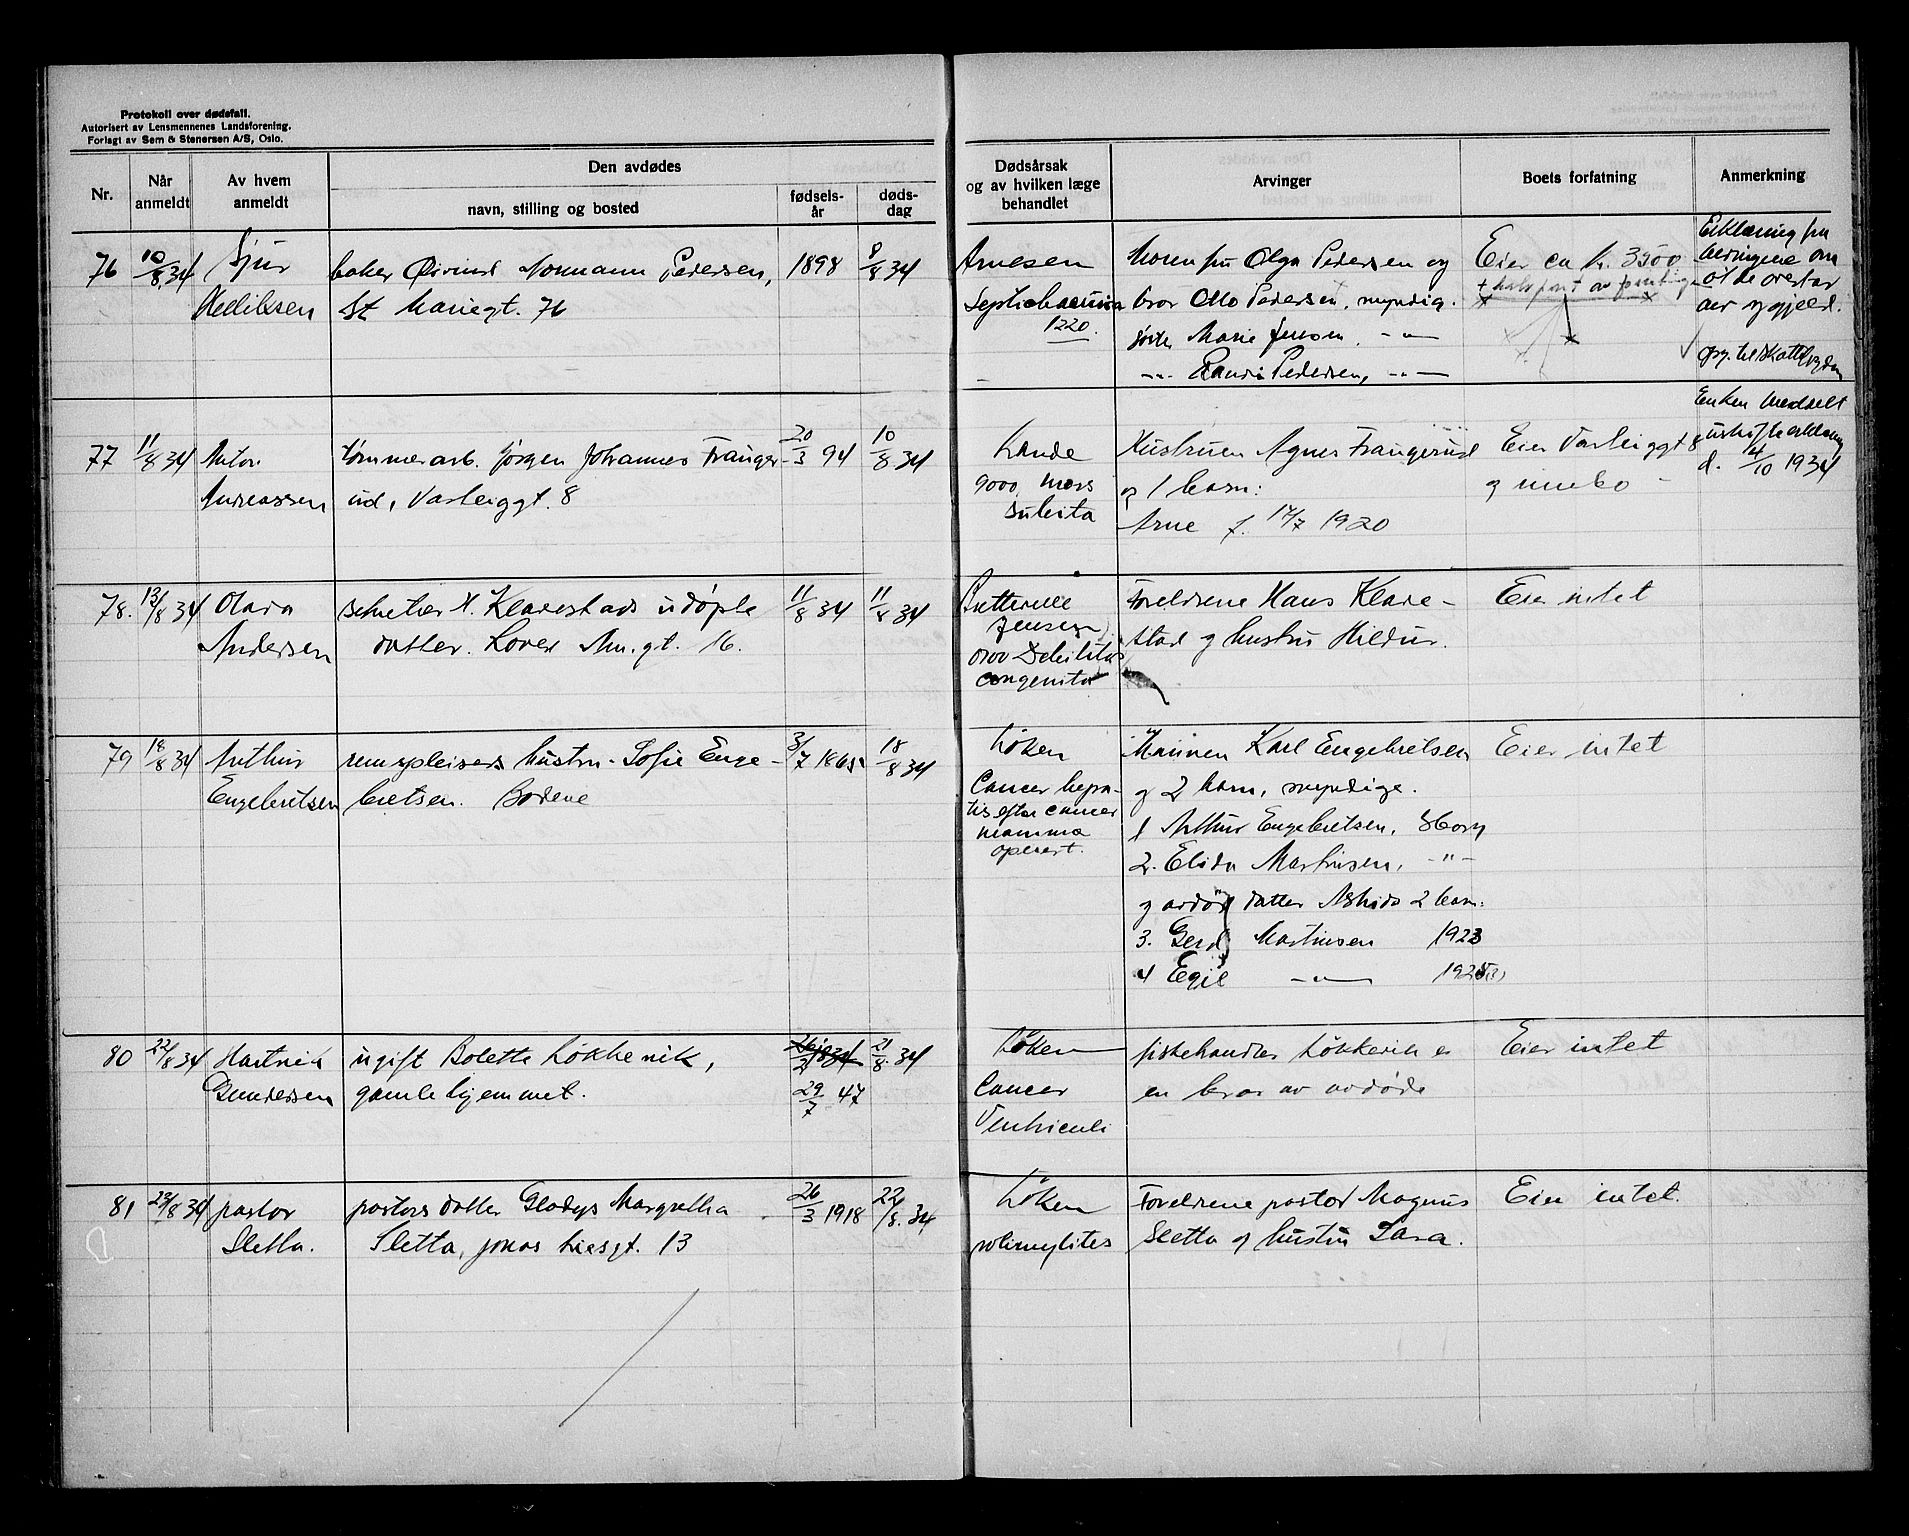 Protokoll over dødsfall.
Autorisert av Lensmennenes Landsforening.
Forlagt av Sem & Stenersen A/S, Oslo.
Nr.
Når anmeldt
Av hvem anmeldt
Den avdødes
navn, stilling og bosted
fødselsår
dødsdag
Dødsårsak og av hvilken læge behandlet
Arvinger
Boets forfatning
Anmerkning
76 10/8.34 Sjur
Hedilksen
baker Øivind Normann Pedersen,
St. Mariegt. 76
1898 9/8 34
Arnesen
Septichaemia
1220.
Moren fru Olga Pedersen og
bror Otto Pedersen, myndig.
søster Marie Jenson, -"-
-"- Randi Pedersen, -"-
Eier ca kr. 3500
+ halvpart av
Erklæring fra
arvingene om
at de overtar
arv og gjeld.
77 11/8 34 Anton
Andreassen
tømmerarb. Jørgen Johannes Frauger-
ud, Varteiggt. 8
20/3 94 10/8 34
Lande
9000, mors
subita
Hustruen Agnes Fraugerud
og 1 barn:
Arne f. 17/7 1920
Eier Varteiggt 8
og innbo
Enken meddelt
uskifteerklæring
d. 4/10 1934
78. 13/8 34 Olava
Andersen
sekretær H. Klavestads udøpte
datter. Lover Am.gt. 16.
11/8 34 11/8 34
Jensen
Debilitas
congenita
Foreldrene Hans Klave-
stad og hustru Hildur.
Eier intet
79 18/8 34 Arthur
Engebretsen
hustru Sofie Enge-
bretsen. Bodene
3/7 1865 18/8 34
Løken
Cancer hepa-
tis efter cancer
mamma
operert.
Mannen Karl Engebretsen
og 2 barn, myndige.
1 Arthur Engebretsen,
2. Elida Martinsen, -"-
og avdød datter Astrids 2 barn:
3. Gerd Martinsen 1923
4 Egil -"- 1925
Eier intet
80 22/8 34 Hartvik
Gundersen
ugift Bolette Løkkevik,
gamlehjemmet.
29/7 47
21/8. 34
Løken
Cancer
Ventriculi
fiskehandler Løkkevik er
en bror av avdøde
Eier intet
81 23/8 34 pastor
Sletta.
pastors datter Gladys Margretha
Sletta, Jonas Liesgt. 13
26/3 1918 22/8. 34
Løken
polimylites
Foreldrene pastor Magnus
Sletta og hustru Sara.
Eier intet.